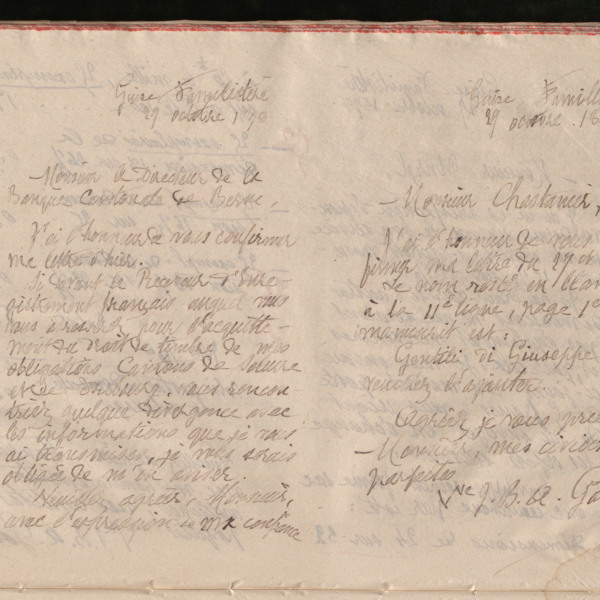 Guise Familistère
29 octobre 18
Monsieur le Directeur de la
Banque Cantonale de Berne,
J'ai l'honneur de vous confirmer
ma lettre d'hier.
Si devant le Receveur d'Enre-
gistrement français auquel vous
vous adressez pour l'acquitte-
ment du droit de timbre de mes
obligations Cantons de
et de Fribourg, vous rencon-
triez quelque divergence avec
les informations que je vous
ai transmises, je vous serais
obligée de m'en aviser.
Veuillez agréer, Monsieur,
avec l'expression de ma confiance
Guise Famili
29 octobre 18
Monsieur Chastanier,
J'ai l'honneur de vous
firmer ma lettre du 27 ct
Le nom resté en blanc
à la 11e ligne, page 1e
manuscrit est:
Gentili di Giuseppe
veuillez l'ajouter.
Agréez, je vous prie
Monsieur, mes civilités
parfaites
Vve J. B. A. Go